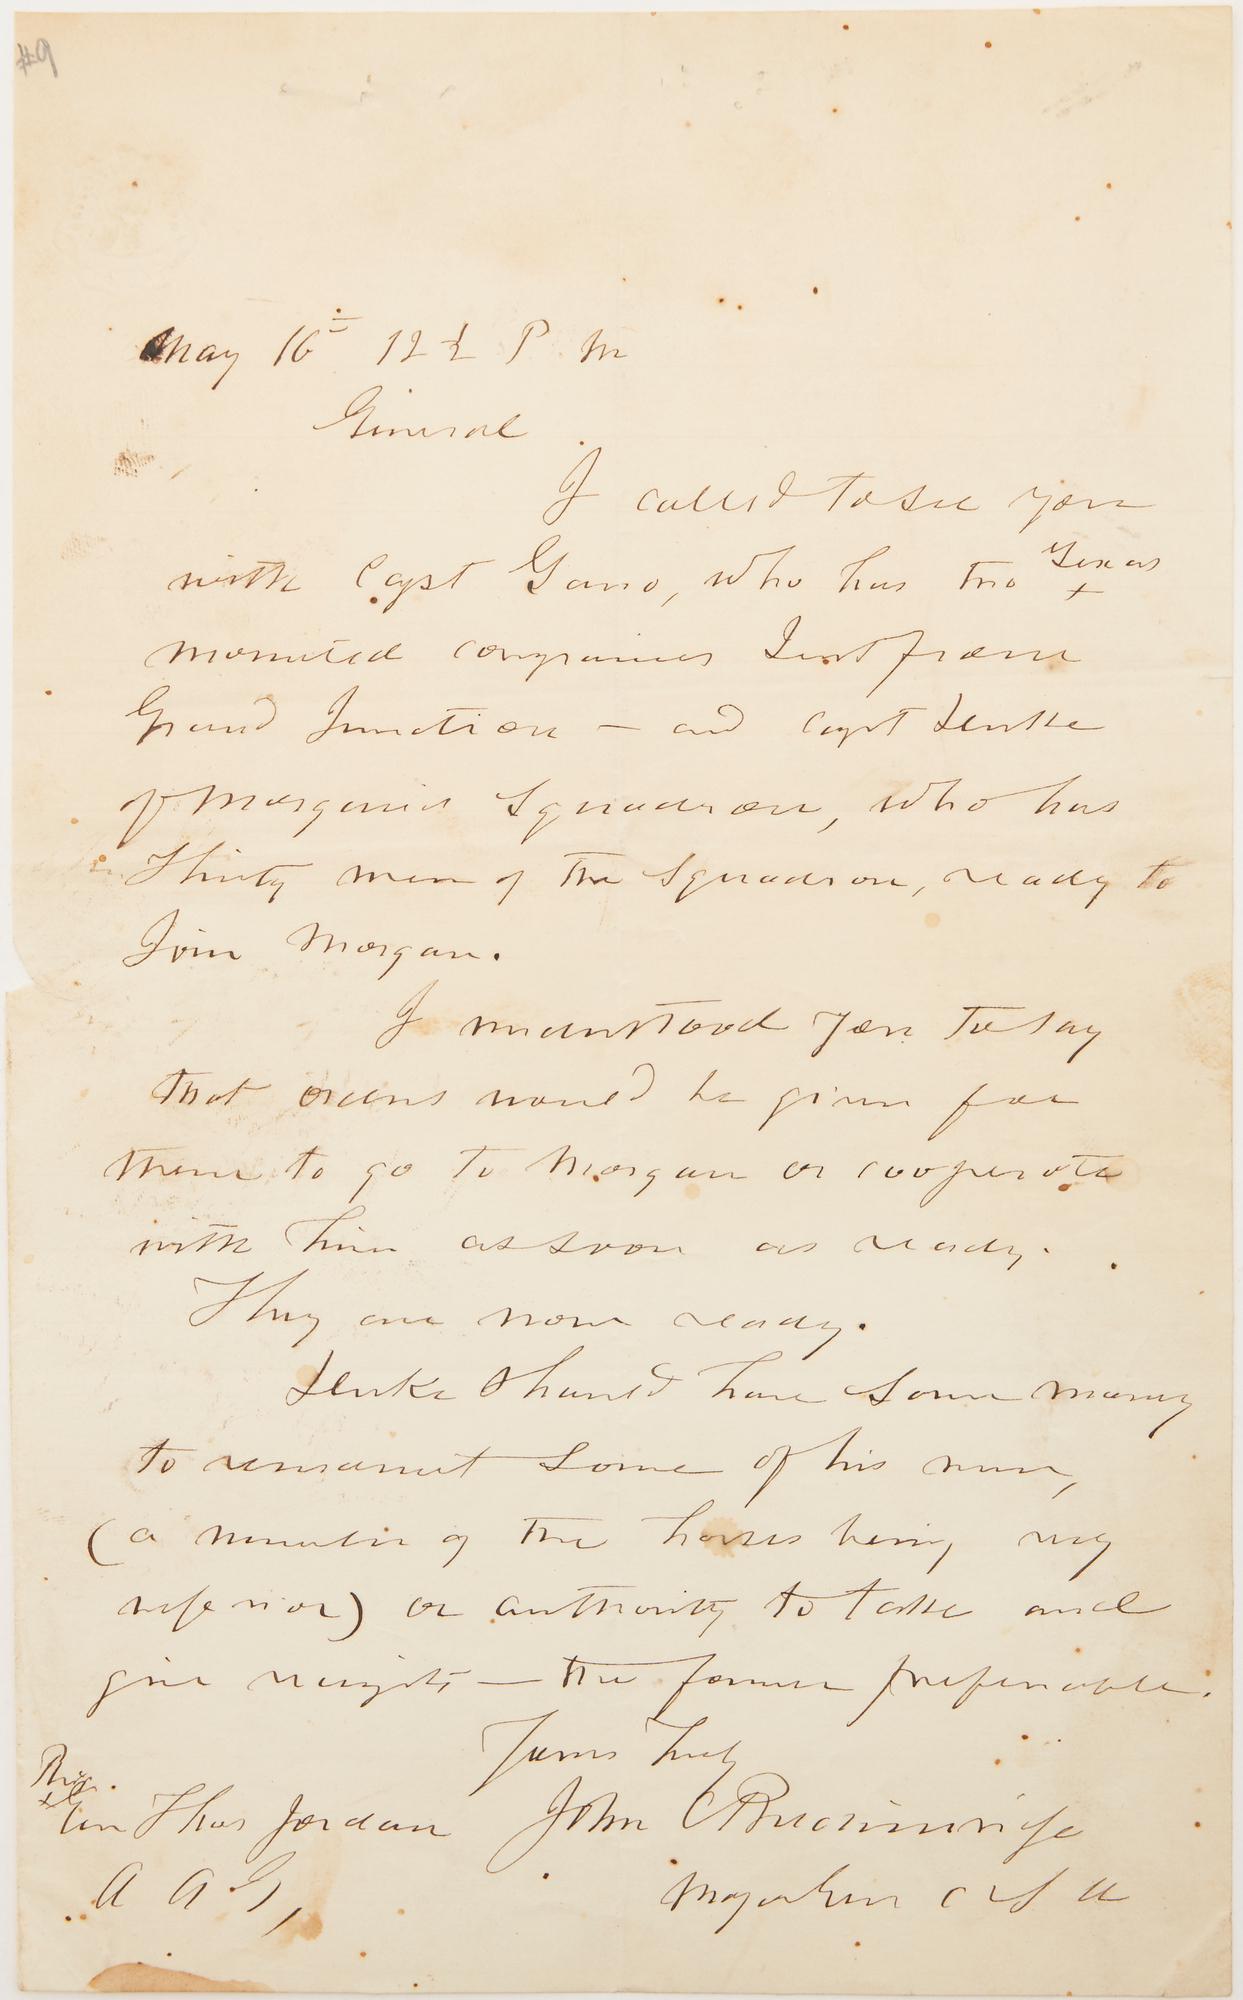 #9
May 16th 12 1/2 P. M
General
I called to see you
with Capt Gano, who has two Texas
mounted companies Just from
Grand Junction — and Capt
of Morgan's Squadron, who has
thirty men of the Squadron, ready to
Join Morgan.
I understood you to say
that orders would be given for
them to go to Morgan or cooperate
with him as soon as ready.
They are now ready.
should have some money
to remount some of his men,
(a number of the horses being very
inferior) or authority to take and
give receipts — the former preferable.
Yours truly
Brig.
Gen Thos Jordan John C Breckinridge
A A G, Major Gen C S A